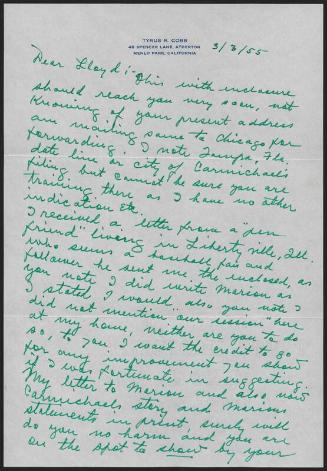 TYRUS R. COBB
48 SPENCER LANE, ATHERTON
MENLO PARK, CALIFORNIA
3/3/55
Dear Lloyd:- This with inclosure
should reach you very soon, not
knowing of your present address
am mailing same to Chicago for
forwarding. I note Tampa, Fla.
date line or city of Carmichaels
filing, but cannot be sure you are
training there as I have no other
indication etc.
I received a letter from a "pen
friend" living in Libertyville, Ill.
who seems a baseball fan and
follower he sent me the inclosed, as
you note I did write Marion as
I stated I would, also you note I
did not mention our session here
at my home, neither are you to do
so, to you I want the credit to go
for any improvement you show
if I was fortunate in suggesting.
My letter to Marion and also, now
Carmichaels story and Marions
statements in print, surely will
do you no harm and you are
on the spot to show by your